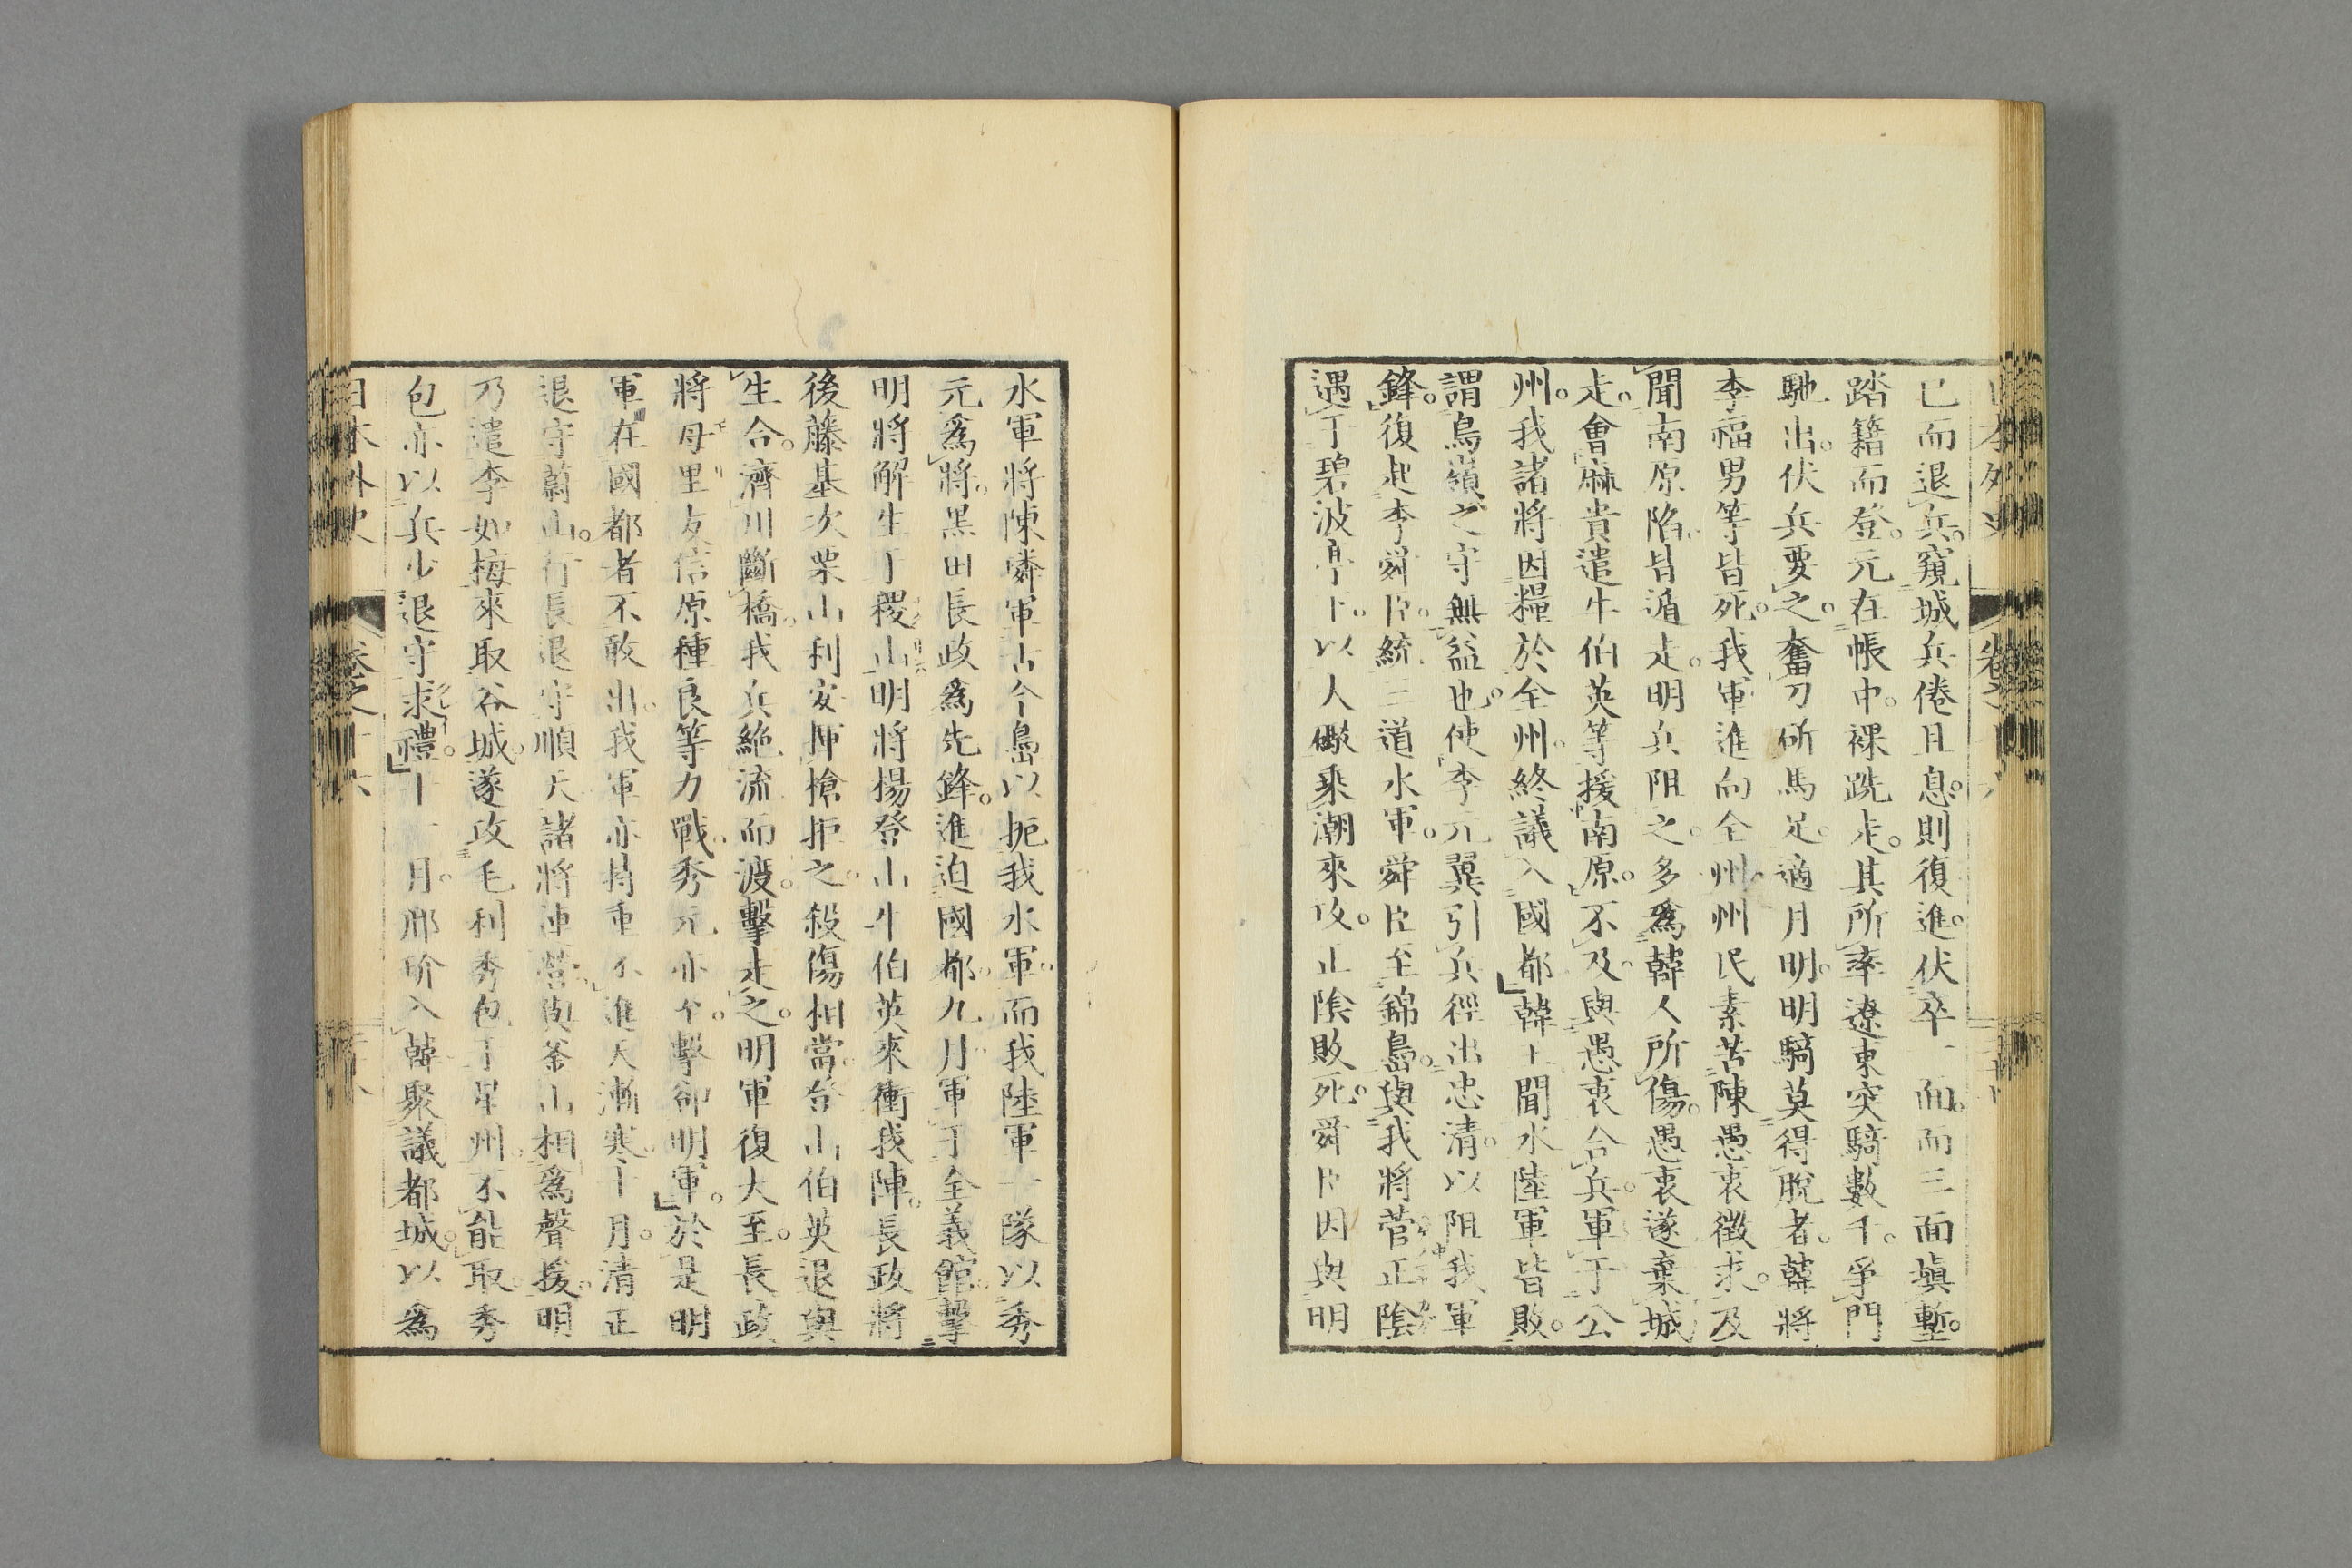 已而退兵。窺城兵倦且息。則復進。伏卒一面。而三面塡塹。
踏籍而登。元在帳中。裸跣走。其所率遼東突騎數千。爭門
馳出。伏兵要之。奮刀斫馬足。適月明。明騎莫得脫者。韓將
李福男等皆死。我軍進向全州。州民素苦陳愚衷徵求。及
聞南原陷。皆遁走。明兵阻之。多爲韓人所傷。愚衷遂棄城
走。會麻貴遣牛伯英等援南原。不及。與愚衷合兵。軍于公
州。我諸將因糧於全州。終議入國都。韓王聞水陸軍皆敗。
謂鳥嶺之守無益也。使李元翼引兵徑出忠淸。以阻我軍
鋒。復起李舜臣。統三道水軍。舜臣至錦島。與我將菅正陰
遇于碧波亭下。以大礮乘潮來攻。正陰敗死。舜臣因與明
水軍將陳璘軍古今島。以扼我水軍。而我陸軍十隊。以秀
元爲將。黑田長政爲先鋒。進迫國都。九月。軍于全義館。擊
明將解生于稷山。明將楊登山牛伯英來衝我陣。長政將
後藤基次栗山利安揮槍拒之。殺傷相當。登山伯英退與
生合。濟川斷橋。我兵絶流而渡。擊走之。明軍復大至。長政
將母里友信原種良等力戰。秀元亦至。擊卻明軍。於是明
軍在國都者不敢出。我軍亦持重不進。天漸寒。十月。淸正
退守蔚山。行長退守順天。諸將連營與釜山相爲聲援。明
乃遣李如梅來取谷城。遂攻毛利秀包于星州。不能取。秀
包亦以兵少退守求禮。十一月。邢玠入韓。聚議都城。以爲
日本外史 卷之十六